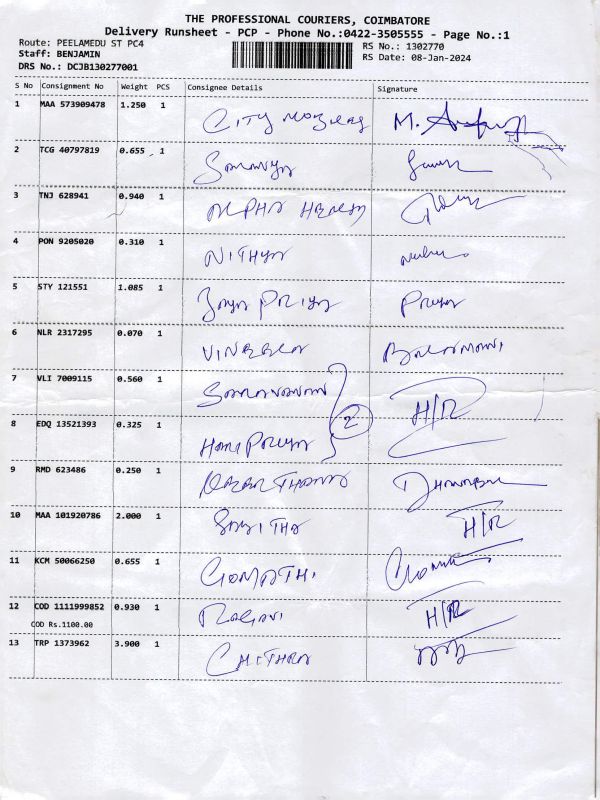 THE PROFESSIONAL COURIERS, COIMBATORE
Delivery Runsheet - PCP - Phone No.:0422-3505555 - Page No.:1
Route: PEELAMEDU ST PC4
Staff: BENJAMIN
DRS No.: DCJB130277001
RS No.: 1302770
RS Date: 08-Jan-2024
S No Consignment No Weight PCS Consignee Details Signature
1 MAA 573909478 1.250 1 CITY M.
2 TCG 40797819 0.655 1
3 TNJ 628941 0.940 1 ALPHA
4 PON 9205020 0.310 1 NITHYA
5 STY 121551 1.085 1 PRIYA Priya
6 NLR 2317295 0.070 1
7 VLI 7009115 0.560 1 Saravanan H/R
8 EDQ 13521393 0.325 1 Hama Priya 2
9 RMD 623486 0.250 1
10 MAA 101920786 2.000 1 SAVITHA H/R
11 KCM 50066250 0.655 1 GOMATHI
12 COD 1111999852 0.930 1 Ragavi H/R
COD Rs.1100.00
13 TRP 1373962 3.900 1 CHITHRA